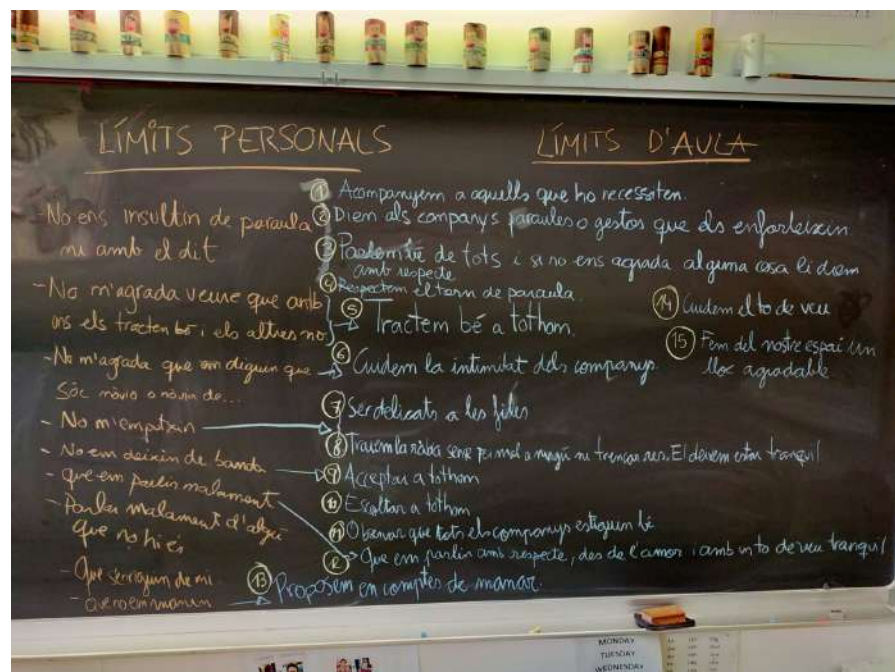 LÍMITS PERSONALS
- No ens insultin de paraula
ni amb el dit
- No m'agrada veure que amb
uns els tracten bé i els altres no.
- No m'agrada que em diguin que
Sóc nòvio o nòvia de...
- No m'emputxin
- No em deixin de banda
- que em parlin malament
- Parlar malament d'algú
que no hi és
- Que se'n riguin de mi
- Que no em manin
LÍMITS D'AULA
1 Acompanyem a aquells que ho necessiten.
2 Diem als companys paraules o gestos que els enforteixin
3 Parlem bé de tots i si no ens agrada alguna cosa li diem
amb respecte
4 Respectem el torn de paraula.
5 Tractem bé a tothom.
6 Cuidem la intimitat dels companys.
7 Ser delicats a les files
8 Traiem la ràbia sense fer mal a ningú ni trencar res. El deixem estar tranquil
9 Acceptar a tothom
10 Escoltar a tothom
11 Observar que tots els companys estiguin bé
12 Que em parlin amb respecte, des de l'amor i amb un to de veu tranquil
13 Proposem en comptes de manar.
14 Cuidem el to de veu
15 Fem del nostre espai un
lloc agradable
MONDAY
TUESDAY
WEDNESDAY